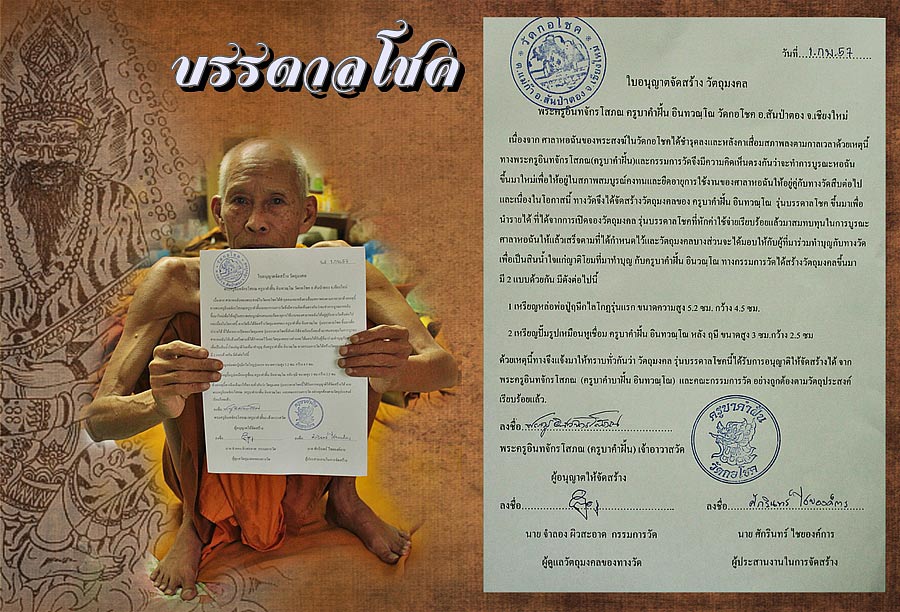 บรรดาลโชค
วัดกอโชค
ต.แม่ก๊า อ.สันป่าตอง จ.เชียงใหม่
วันที่...1.กพ.57
ใบอนุญาตจัดสร้าง วัตถุมงคล
พระครูอินทจักรโสภณ ครูบาคำฝั้น อินทวณฺโณ วัดกอโชค อ.สันป่าตอง จ.เชียงใหม่
เนื่องจาก ศาลาหอฉันของพระสงฆ์ในวัดกอโชคได้ชำรุดลงและหลังคาเสื่อมสภาพลงตามกาลเวลาด้วยเหตุนี้
ทางพระครูอินทจักรโสภณ(ครูบาคำฝั้น)และกรรมการวัดจึงมีความคิดเห็นตรงกันว่าจะทำการบูรณะหอฉัน
ขึ้นมาใหม่เพื่อให้อยู่ในสภาพสมบูรณ์คงทนและยืดอายุการใช้งานของศาลาหอฉันให้อยู่คู่กับทางวัดสืบต่อไป
และเนื่องในโอกาสนี้ ทางวัดจึงได้จัดสร้างวัตถุมงคลของ ครูบาคำฝั้น อินทวณฺโณ รุ่นบรรดาลโชค ขึ้นมาเพื่อ
นำรายได้ ที่ได้จากการเปิดจองวัตถุมงคล รุ่นบรรดาลโชคที่หักค่าใช้จ่ายเรียบร้อยแล้วมาสมทบทุนในการบูรณะ
ศาลาหอฉันให้แล้วเสร็จตามที่ได้กำหนดไว้และวัตถุมงคลบางส่วนจะได้มอบให้กับผู้ที่มาร่วมทำบุญกับทางวัด
เพื่อเป็นสินน้ำใจแก่ญาติโยมที่มาทำบุญ กับครูบาคำฝั้น อินทวณฺโณ ทางกรรมการวัดได้สร้างวัตถุมงคลขึ้นมา
มี 2 แบบด้วยกัน มีดังต่อไปนี้
1 เหรียญหล่อพ่อปู่ฤาษีกไลโกฏรุ่นแรก ขนาดความสูง 5.2 ซม. กว้าง 4.5 ซม.
2 เหรียญปั๊มรูปเหมือนหูเชื่อม ครูบาคำฝั้น อินทวณฺโณ หลัง ฤาษี ขนาดสูง 3 ซม.กว้าง 2.5 ซม
ด้วยเหตุนี้ทางจึงแจ้งมาให้ทราบทั่วกันว่า วัตถุมงคล รุ่นบรรดาลโชคนี้ได้รับการอนุญาติให้จัดสร้างได้ จาก
พระครูอินทจักรโสภณ (ครูบาคำฝั้น อินทวณฺโณ) และคณะกรรมการวัด อย่างถูกต้องตามวัตถุประสงค์
เรียบร้อยแล้ว.
ลงชื่อ
พระครูอินทจักรโสภณ (ครูบาคำฝั้น) เจ้าอาวาสวัด
ผู้อนุญาตให้จัดสร้าง
ครูบาคำฝั้น
วัดกอโชค
ลงชื่อ
ลงชื่อ ศักรินทร์ ไชยองค์การ
นาย จำลอง ผิวสะอาด กรรมการวัด
นาย ศักรินทร์ ไชยองค์การ
ผู้ดูแลวัตถุมงคลของทางวัด
ผู้ประสานงานในการจัดสร้าง